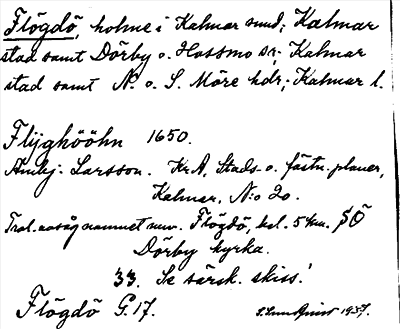 Flögdö, holme i Kalmar sund; Kalmar
stad samt Dörby o. Hossmo sr; Kalmar
stad samt N. o. S. Möre hdr; Kalmar l.
Flijghööhn 1650.
Ambj. Larsson. KrA, Stads- o. fästn. planer,
Kalmar, N:o 20.
Trol. avsåg namnet nuv. Flögdö, bel. 5 km. SÖ
Dörby kyrka.
33. Se särsk. skiss!
Flögdö G.17.
1937.